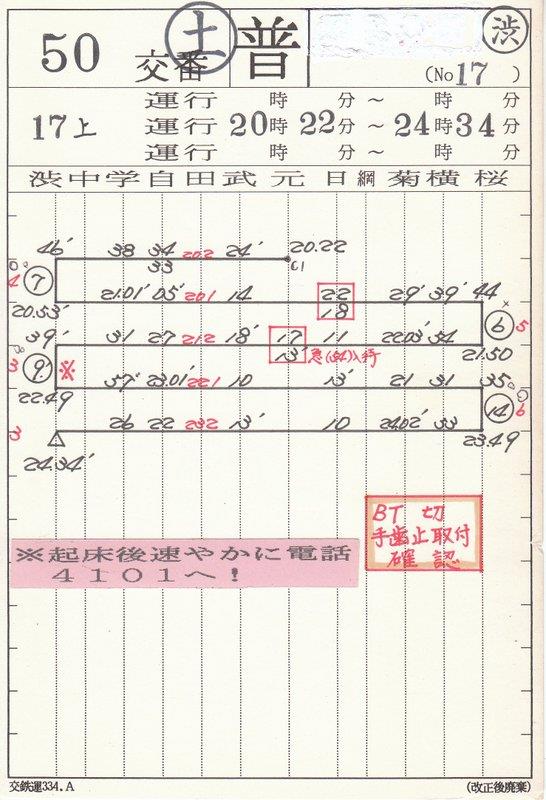 50 交番 土 普 渋
(No 17 )
運行 時 分 ～ 時 分
17上 運行 20時 22分 ～ 24時 34分
運行 時 分 ～ 時 分
渋 中 学 自 田 武 元 日 綱 菊 横 桜
46' 38 34 202 24' 20.22
4 7 33
21.01' 05' 201 14 22 29' 39' 44
20.53' 18 6 5
39' 31 27 212 18' 17 11 22.03' 54
3 9' ※ 13' 21.50
57' 23.01' 221 10 13' 21 31 35
22.49 14 6
3 26 22 232 13' 10 24.02' 33
24.34' 23.49
BT 切
手歯止取付
確認
※起床後速やかに電話
4101へ!
交鉄運334.A (改正後廃棄)